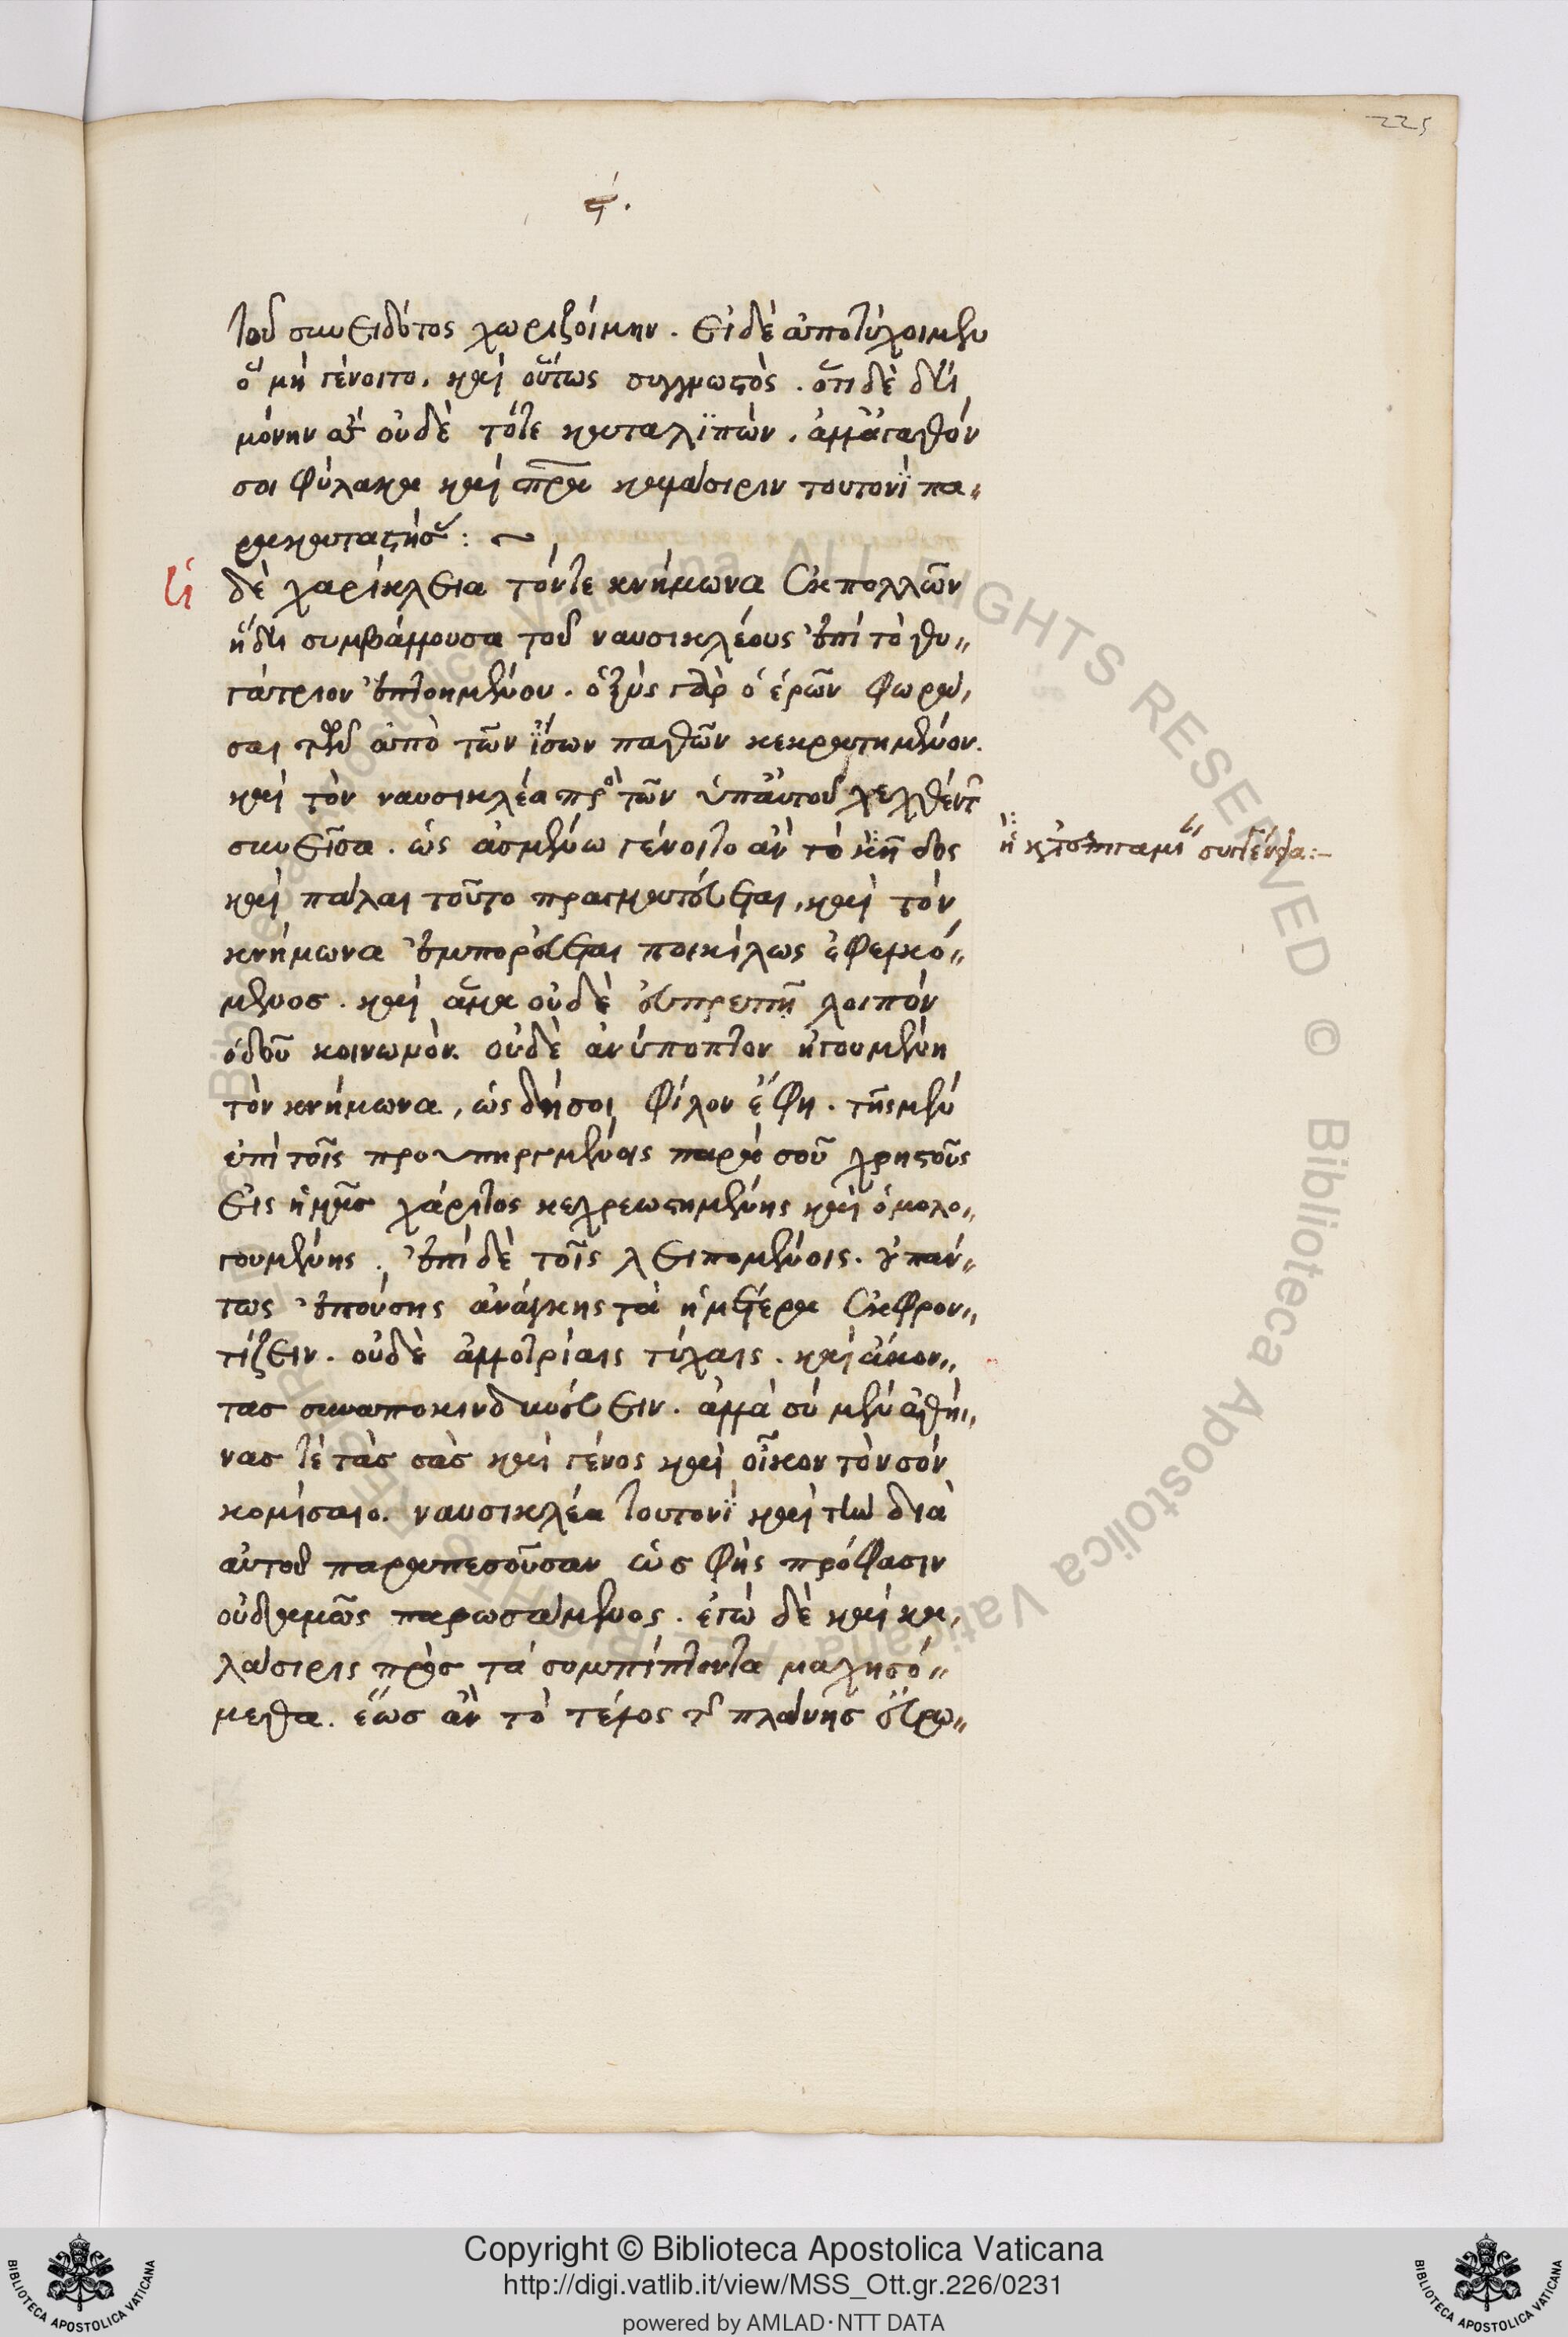 225
ϛ´.
τοῦ συνειδότος χωριζοίμην. εἰ δὲ ἀποτύχοιμεν
ὃ μὴ γένοιτο, καὶ οὕτως συγγνωστὸς. ὅτι δὲ δὴ
μόνην σε οὐδὲ τότε καταλϊπὼν, ἀλλἀγαθόν
σοι φύλακα καὶ πρα καλάσιριν τουτονῒ πα"
ρακαταστήσ: ~
ἡ δὲ χαρίκλεια τόντε κνήμωνα ἐκ πολλῶν
ἤδη συμβάλλουσα τοῦ ναυσικλέους ἐπὶ τὸ θυ"
γάτριον ἐπτοημένου. ὀξὺς γὰρ ὁ ἐρῶν φωρά,
σαι τὸν ἀπὸ τῶν ἴσων παθῶν κεκρατημένον.
καὶ τὸν ναυσικλέα πρὸ τῶν ὑπἀυτοῦ λεχθέντ
συνεῖσα. ὡς ἀσμένω γένοιτο ἂν τὸ κῆδος
καὶ πάλαι τοῦτο πραγματεύεται, καὶ τὸν
κνήμωνα ἐμπορεύεται ποικίλως ἐφελκό"
μενος. καὶ ἅμα οὐδὲ εὐπρεπῆ λοιπὸν
ὁδοῦ κοινωνὸν. οὐδὲ ἀνύποπτον ἡγουμένη
τὸν κνήμωνα, ὡς δή σοι φίλον ἔφη. τῆς μὲν
ἐπὶ τοῖς προϋπηργμένοις παρὰ σοῦ χρηστοῦς
εἰς ἡμᾶς χάριτος κεχρεωστημένης καὶ ὁμολο"
γουμένης. ἐπὶ δὲ τοῖς λειπομένοις. οὐ πάν"
τως ἐπούσης ἀνάγκης τὰ ἡμέτερα ἐκφρον"
τίζειν. οὐδὲ ἀλλοτρίαις τύχαις. καὶ ἄκον"
τας συναποκινδυνεύειν. ἀλλὰ σὺ μὲν ἀθή"
νας τὲ τὰς σὰς καὶ γένος καὶ οἶκον τὸν σόν
κομίσαιο. ναυσικλέα τουτονῒ καὶ τὴν διὰ
αὐτοῦ παραπεσοῦσαν ὡς φὴς πρόφασιν
οὐδαμῶς παρωσάμενος. ἐγὼ δὲ καὶ κα,
λάσιρις πρὸς τὰ συμπίπτοντα μαχησό"
μεθα. ἕως ἂν τὸ τέλος τ πλάνης εὕρω"
Copyright © Biblioteca Apostolica Vaticana
http://digi.vatlib.it/view/MSS_Ott.gr.226/0231
powered by AMLAD·NTT DATA